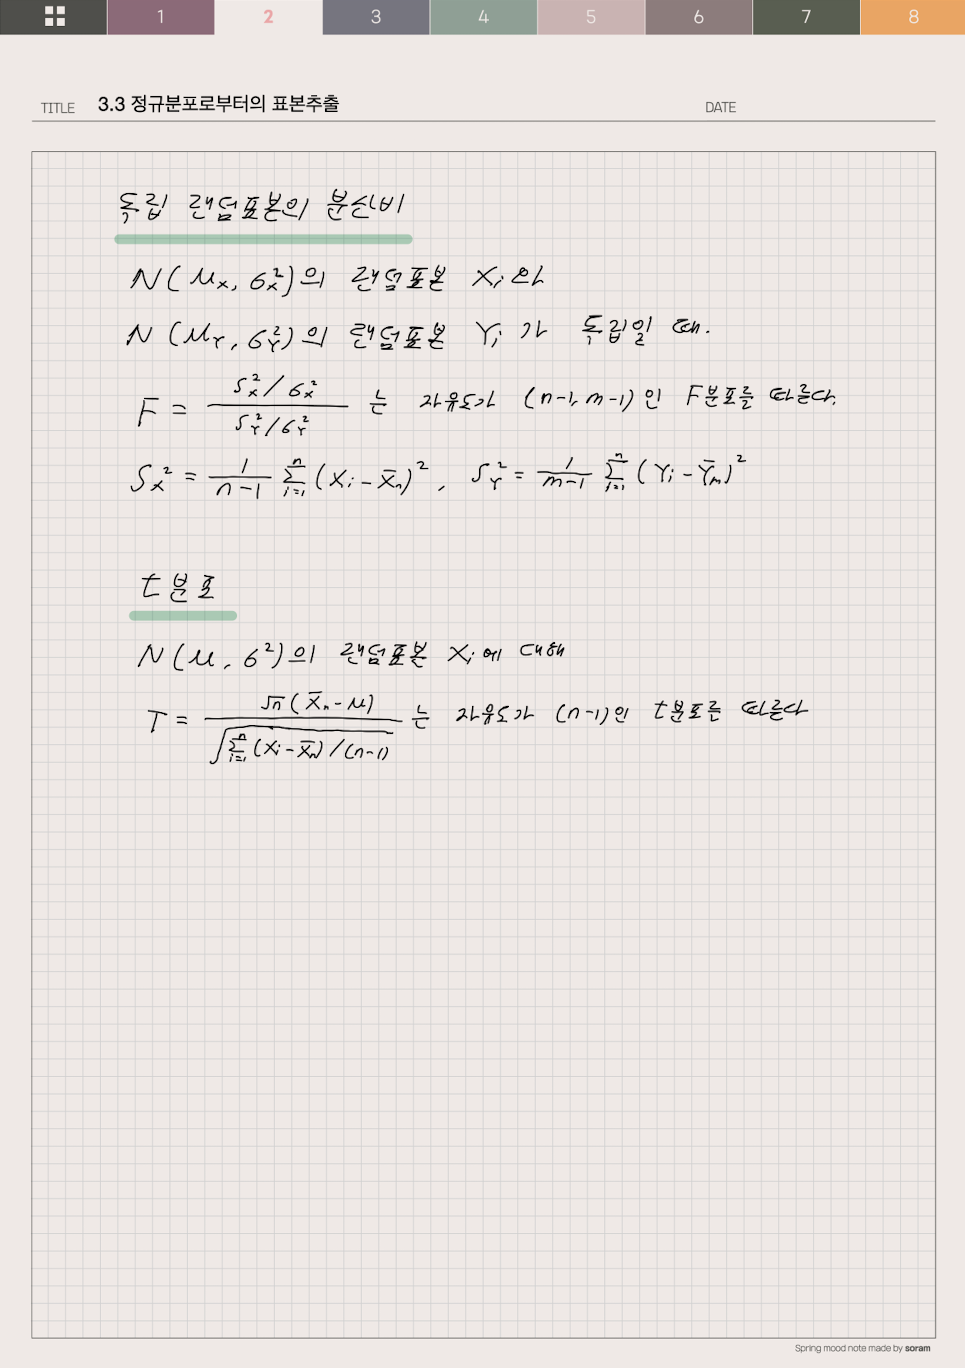 1 2 3 4 5 6 7 8
TITLE 3.3 정규분포로부터의 표본추출 DATE
독립 랜덤표본의 분산비
N(μ_X, σ_X²)의 랜덤표본 X_i 와
N(μ_Y, σ_Y²)의 랜덤표본 Y_i 가 독립일 때.
F = (S_X²/σ_X²) / (S_Y²/σ_Y²) 는 자유도가 (n-1, m-1)인 F분포를 따른다.
S_X² = 1/(n-1) Σ_{i=1}^{n} (X_i - X̄_n)², S_Y² = 1/(m-1) Σ_{i=1}^{n} (Y_i - Ȳ_m)²
t분포
N(μ, σ²)의 랜덤표본 X_i에 대해
T = √n(X̄_n - μ) / √(Σ_{i=1}^{n} (X_i - X̄_n)/(n-1)) 는 자유도가 (n-1)인 t분포를 따른다
Spring mood note made by soram